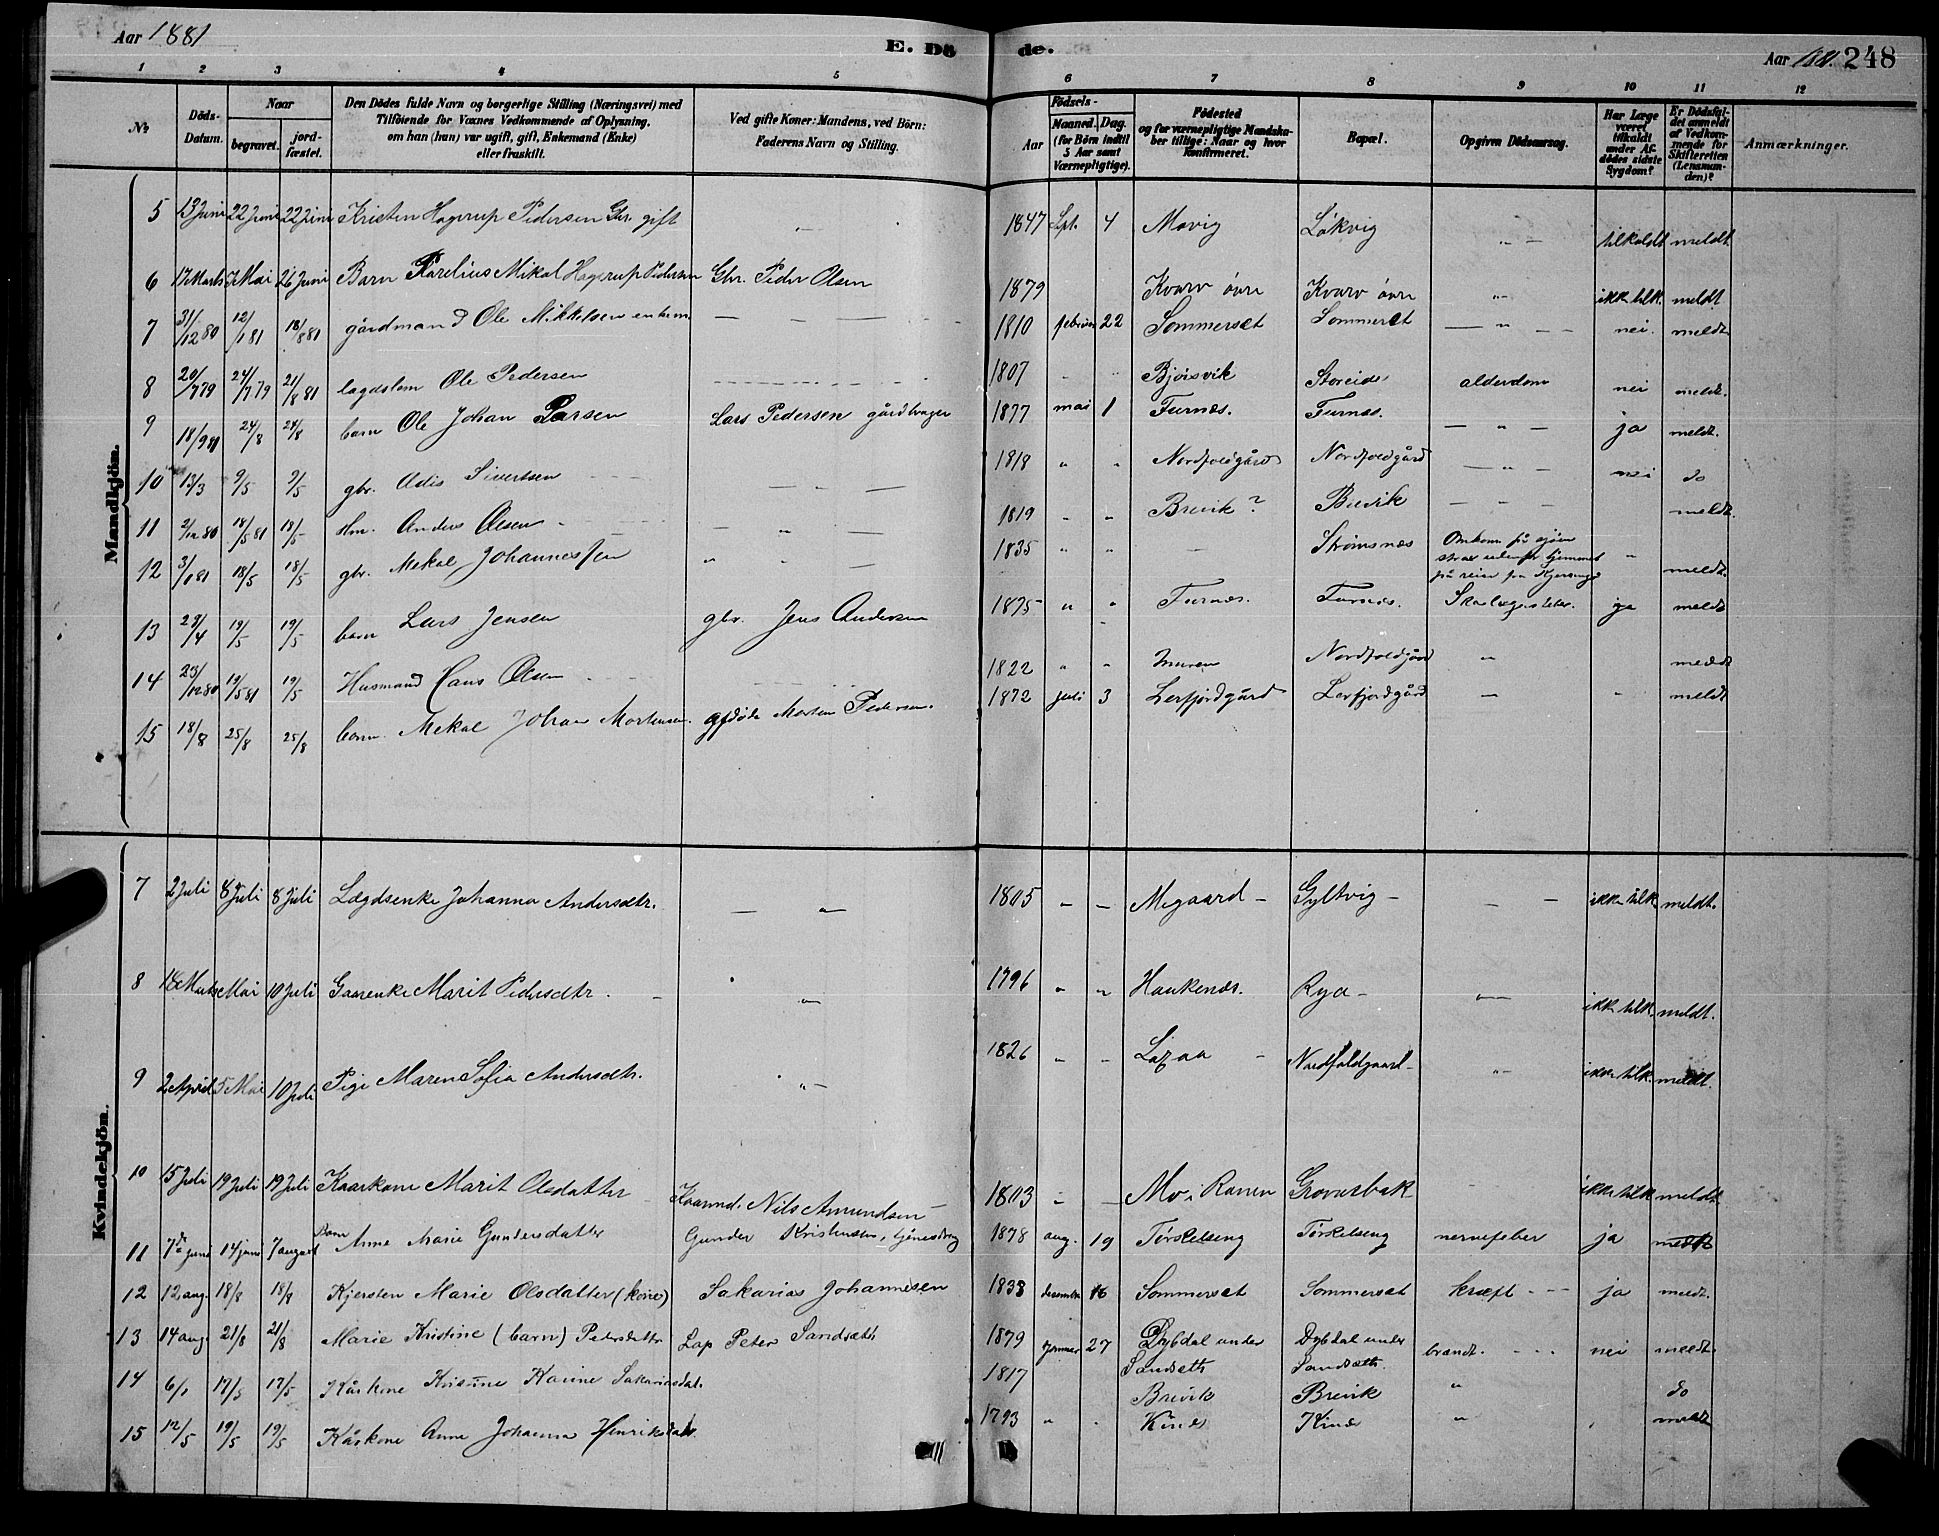 Aar 1881
E. Dö de.
Aar 1881. 248
1 2 3 4 5 6 7 8 9 10 11 12
No
Döds-Datum.
Naar
begravet. jordfæstet.
Den Dödes fulde Navn og borgerlige Stilling (Næringsvei) med
Tilföiende for Voxnes Vedkommende af Oplysning,
om han (hun) var ugift, gift, Enkemand (Enke)
eller fraskilt.
Ved gifte Koner: Mandens, ved Börn:
Faderens Navn og Stilling.
Födsels-
Aar Maaned. Dag.
(for Börn indtil
5 Aar samt
Værnepligtige).
Födested
og for værnepligtige Mandska-
ber tillige: Naar og hvor
Konfirmeret.
Bopæl.
Opgiven Dödsaarsag.
Har Læge
været
tilkaldt
under Af-
dödes sidste
Sygdom?
Er Dödsfal-
det anmeldt
af Vedkom-
mende for
Skifteretten
(Lensman-
den)?
Anmærkninger.
Mandkjön.
5 13 Juni 22 Juni 22 Juni Kristen Hagerup Pedersen Gbr. gift 1847 Spt. 4 Movig Løkvig tilkaldt meldt
6 17 Marts Mai 26 Juni Barn Parelius Mikal Hagerup Pedersen Gbr. Peder Olsen 1879 Kvarv övre Kvarv övre ikke tilk. meldt
7 31/12 80 12/1 81 18/8 81 gårdmand Ole Mikkelsen enkem. 1810 februar 22 Sommerset Sommerset nei. meldt
8 20/7 79 24/7 79 21/8 81 lægdslem Ole Pedersen 1807 Bjørsvik Storeide alderdom nei meldt.
9 18/9 81 24/8 24/8 barn Ole Johan Larsen Lars Pedersen gårdbruger 1877 mai 1 Furnes. Furnes. ja meldt.
10 13/3 9/5 9/5 gbr. Adis Sivertsen 1818 " " Nordfoldgård Nordfoldgård nei do
11 2/12 80 18/5 81 18/5 Hm. Anders Olsen 1819 Brevik? Brevik meldt.
12 3/1 81 18/5 18/5 gbr. Mekal Johannessen 1835 " " Strømsnes Omkom på sjøen
strax udenfor hjemmet
på reise fra Kjerringø " meldt.
13 28/4 19/5 19/5 barn Lars Jensen gbr. Jens Andersen 1875 " " Furnes. Furnes. Skarlagensfeber. ja meldt
14 23/12 80 19/5 81 19/5 Husmand Hans Olsen 1822 " " Nordfoldgård " meldt
15 18/8 25/8 25/8 barn. Mekal Johan Mortensen. Morten Pedersen. 1872 juli 3 Lerfjordgård Lerfjordgård meldt
Kvindekjön.
7 2 Juli 8 Juli 8 Juli Lægdsenke Johanna Andersdtr. 1805 Megaard Gyltvig ikke tilk. meldt.
8 18 Marts Mai 10 Juli Gaarenke Marit Pedersdtr. 1796 " " Haukenæs. Rya ikke tilk. meldt.
9 2 April 5 Mai 10 Juli Pige Maren Sofia Andersdtr. 1826 Nordfoldgaard ikke tilk. meldt.
10 15 Juli 19 Juli 19 Juli Kaarkone Marit Olsdatter Kaarmd. Nils Amundsen 1803 Mo i Ranen Grovasbak ikke tilk. meldt
11 7de juni 14 juni 7 august Barn Anne Marie Gundersdatter Gunder Kristensen, tjenestdreng 1878 aug. 19 Tørskelseng Tørskelseng nervefeber ja meldt
12 12 aug. 18/8 18/8 Kjersten Marie Olsdatter (kone) Sakarias Johannesen 1838 desember 16 Sommerset Sommerset kræft ja meldt.
13 14 aug. 21/8 21/8 Marie Kristine (barn) Pedersdatter Lap Peter Sandsæth 1879 januar 27 Dybdal under
Sandsæth Dybdal under
Sandsæth. brændt. nei meldt.
14 6/1 17/5 17/5 Kårkone Karine Sakariasdat. 1817 Brevik Brevik " do
15 12/5 19/5 19/5 Kårkone Anne Johanna Henriksdatr. 1793 " Kines Kines " meldt